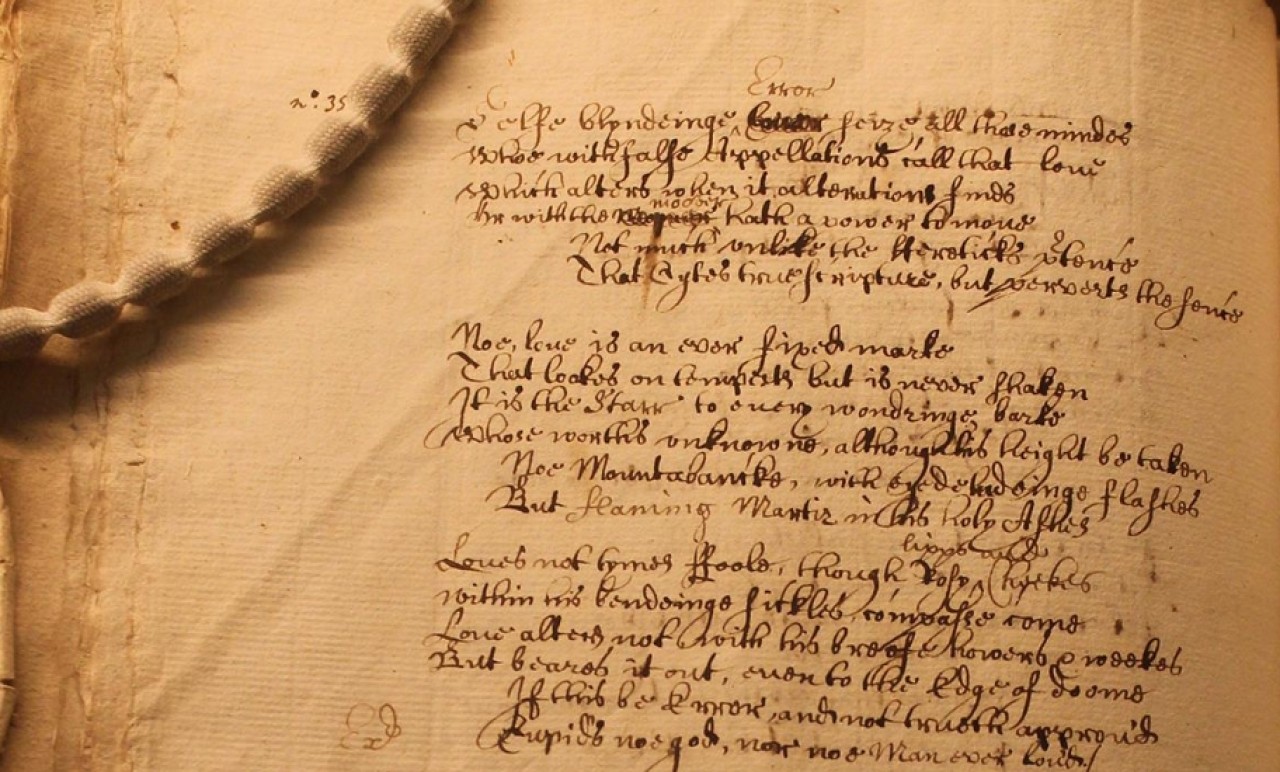 Error
n°. 35
Selfe blyndeinge seize all those mindes
Whoe with false Appellations call that love
Which alters when it alterations finds
mover
Or with the hath a power to move
Not much unlike the Hereticks p'tence
That Cytes true scripture, but perverts the sence
Noe, love is an ever fixed marke
That lookes on tempests but is never shaken
It is the Starr to every wondringe barke
Whose worths unknowne, although his height be taken
Noe Mountabancke, with eyedeludeinge flashes
But flaming Martir in his holy Ashes
lipps and
Loves not tymes ffoole, though Rosy Cheekes
within his bendeinge sickles compasse come
Love alters not with his breife howers & weekes
But beares it out, even to the Edge of doome
If this be Error, and not trueth approv'd
Exd
Cupids noe god, nor noe Man ever lov'd